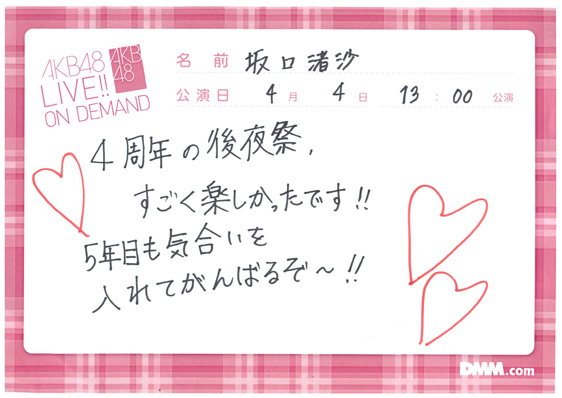 AKB48
LIVE!!
ON DEMAND
AKB
48
名前 坂口渚沙
公演日 4月 4日 13:00 公演
4周年の後夜祭,
すごく楽しかったです!!
5年目も気合いを
入れてがんばるぞ〜!!
DMM.com